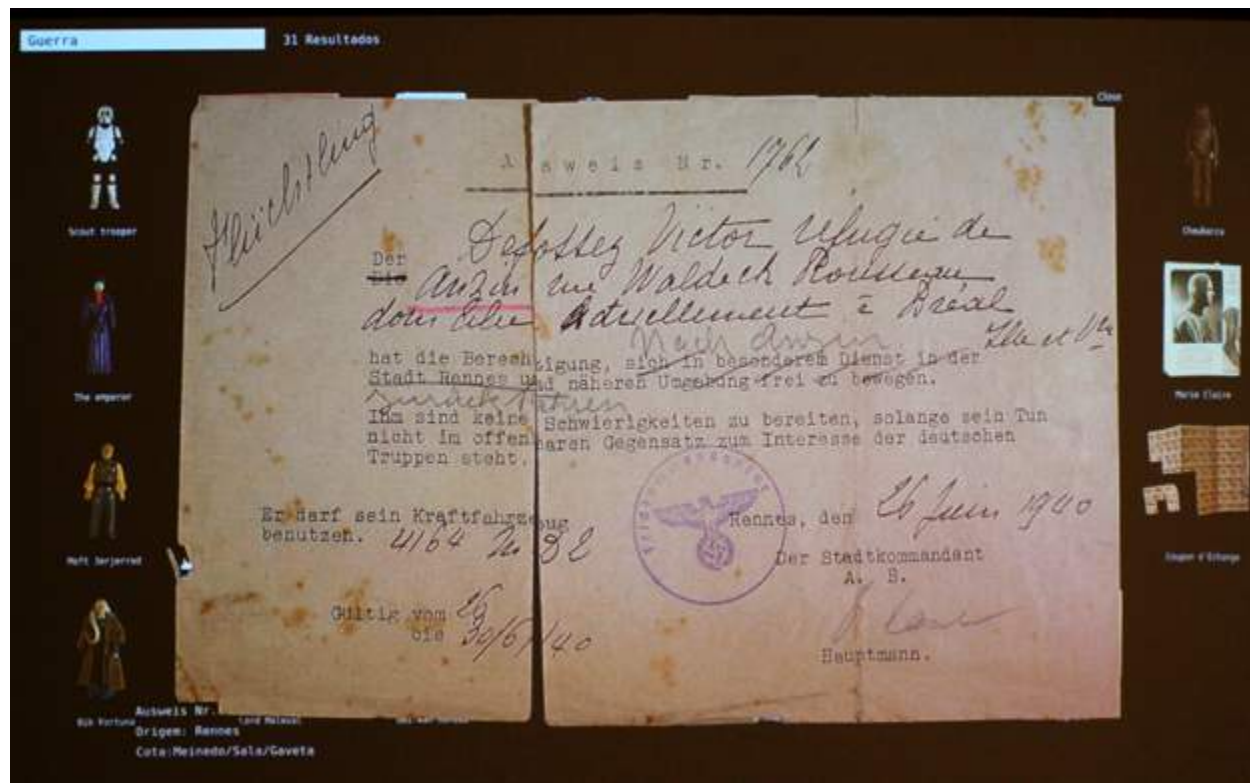 Guerra
31 Resultados
Close
Scout trooper
The emperor
Bib Fortuna
Marie Claire
Flüchtling
Ausweis Nr. 1762
Der Defossez Victor réfugié de
Die Anzin rue Waldeck Rousseau
domicilié actuellement à Bréal
nach Anzin Ille et Vne
hat die Berechtigung, sich in besonderem Dienst in der
Stadt Rennes und näheren Umgebung frei zu bewegen.
zurück fahren
Ihm sind keine Schwierigkeiten zu bereiten, solange sein Tun
nicht im offenbaren Gegensatz zum Interesse der deutschen
Truppen steht.
Er darf sein Kraftfahrzeug
benutzen. 4164
Rennes, den 26 Juin 1940
Der Stadtkommandant
A. B.
Gültig vom 26
bis 30/6/40
Hauptmann.
Ausweis Nr.
Origem: Rennes
Cota:Meinedo/Sala/Gaveta